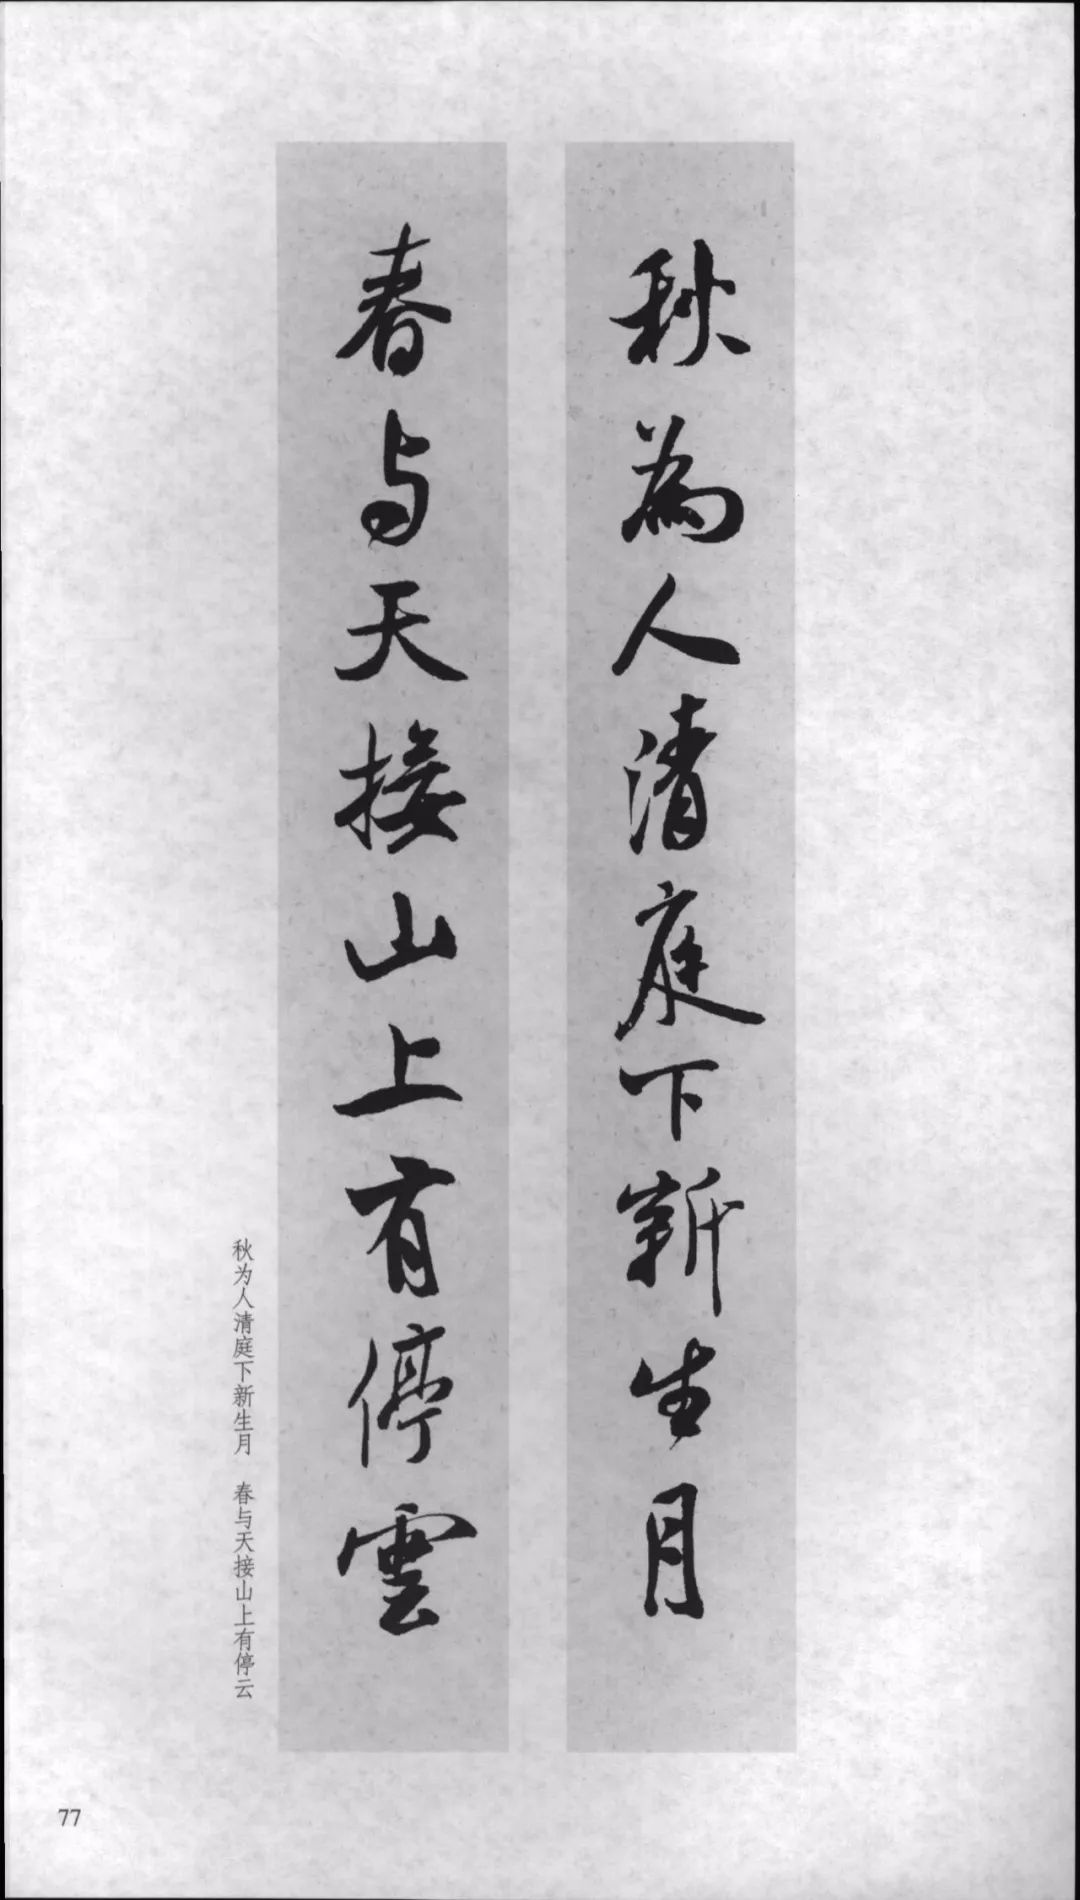 秋為人清庭下新生月
春与天接山上有停雲
秋为人清庭下新生月　春与天接山上有停云
77